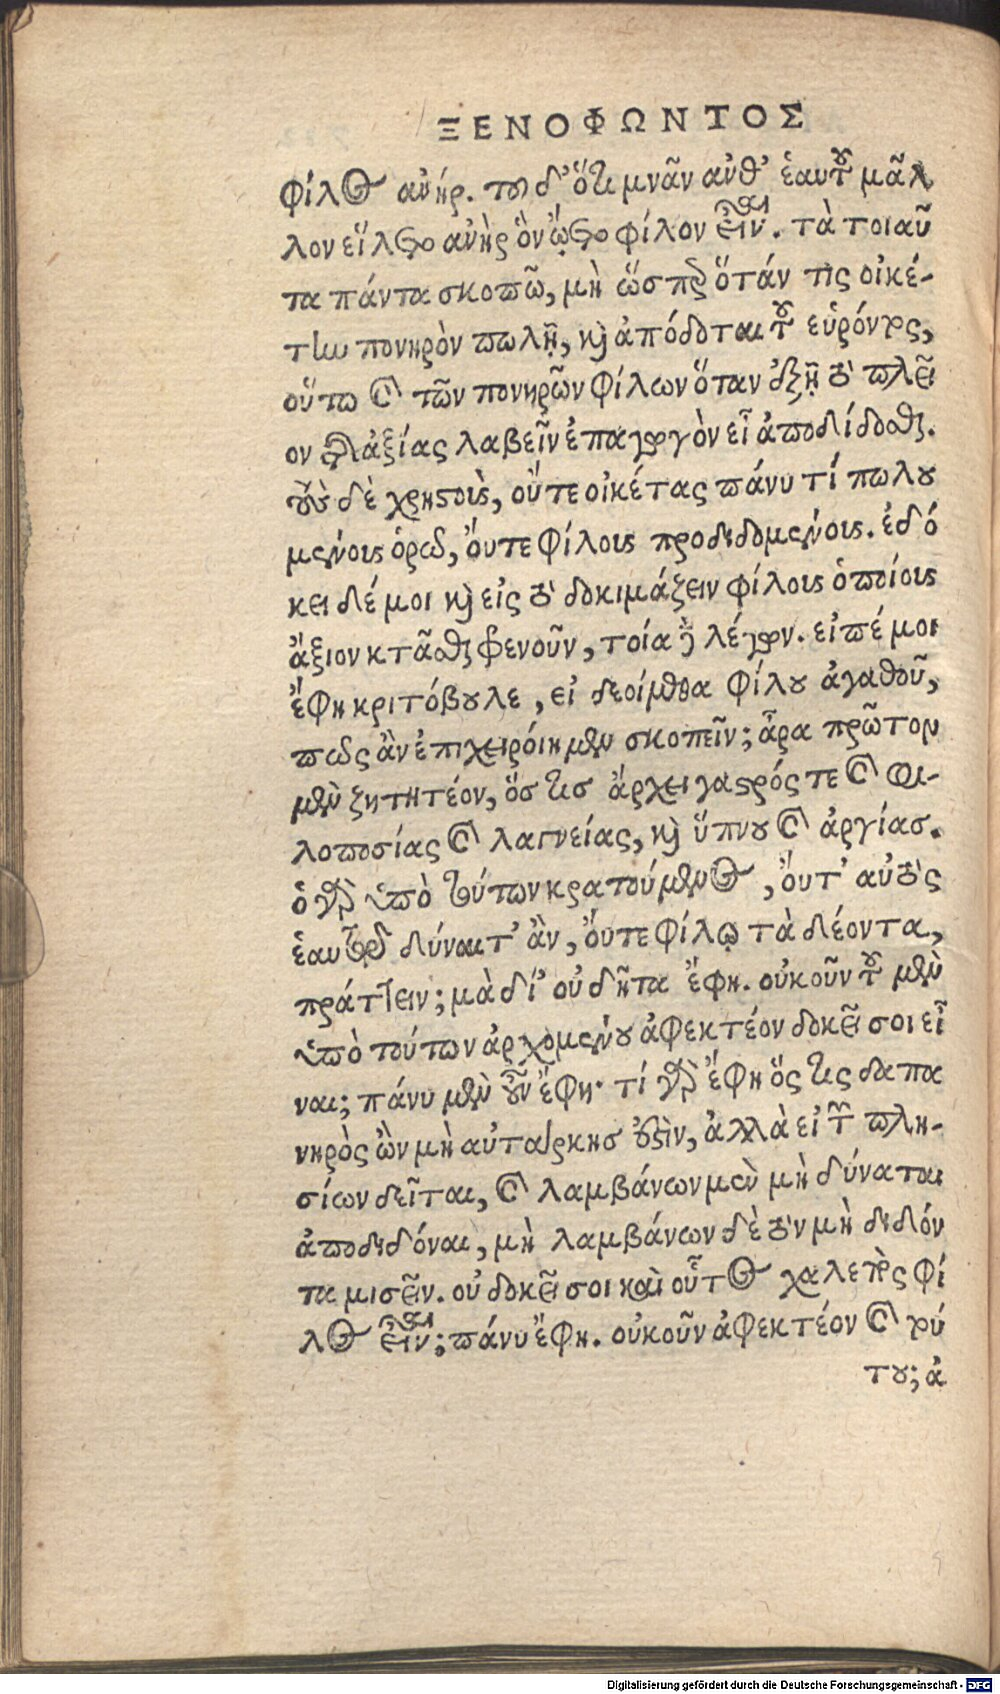 ΞΕΝΟΦΩΝΤΟΣ
φίλος ἀνήρ. τὸ δ' ὅτι μνᾶν ἀνθ' ἑαυτοῦ μᾶλ
λον εἵλετο ἀνὴρ ὃν ᾤετο φίλον εἶναι. τὰ τοιαῦ
τα πάντα σκοπῶ, μὴ ὥσπερ ὅτάν τις οἰκέ-
την πονηρὸν πωλῇ, καὶ ἀπόδοται τοῦ εὑρόντος,
οὕτω καὶ τῶν πονηρῶν φίλων ὅταν ἐξῇ τὸ πλεῖ
ον τῆς ἀξίας λαβεῖν ἐπαγωγὸν εἶ ἀποδίδοσθαι.
τοὺς δὲ χρηστοὺς, οὔτε οἰκέτας πάνυ τί πωλου
μένους ὁρῶ, ὄυτε φίλους προδιδομένους. ἐδό
κει δέ μοι καὶ εἰς τὸ δοκιμάζειν φίλους ὁποίους
ἄξιον κτᾶσθαι φρενοῦν, τοιάδε λέγων. εἰπέ μοι
ἔφη κριτόβουλε, εἰ δεοίμεθα φίλου ἀγαθοῦ,
πῶς ἂν ἐπιχειρόιημεν σκοπεῖν; ἆρα πρῶτον
μὲν ζητητέον, ὅστισ ἄρχει γαστρός τε καὶ φι-
λοποσίας καὶ λαγνείας, καὶ ὕπνου καὶ ἀργίασ.
ὁ γὰρ ὑπὸ τούτων κρατούμενος, ὄυτ' αὐτὸς
ἑαυτῷ δύναιτ' ἂν, ὄυτε φίλῳ τὰ δέοντα,
πράττειν; μὰ δί' οὐ δῆτα ἔφη. οὐκοῦν τοῦ μὲν
ὑπὸ τούτων ἀρχομένου ἀφεκτέον δοκεῖ σοι εἶ
ναι; πάνυ μὲν οὖν ἔφη· τί γὰρ ἔφη ὅς τις δαπα
νηρὸς ὢν μὴ αὐτάρκησ ἐστὶν, ἀλλὰ εἰ τῶν πλη-
σίων δεῖται, καὶ λαμβάνων μὲν μὴ δύναται
ἀποδιδόναι, μὴ λαμβάνων δὲ τὸν μὴ διδόν
τα μισεῖν. οὐ δοκεῖ σοι καὶ οὗτος χαλεπὸς φί
λος εἶναι; πάνυ ἔφη. οὐκοῦν ἀφεκτέον καὶ τού
του; ἀ
Digitalisierung gefördert durch die Deutsche Forschungsgemeinschaft - DFG